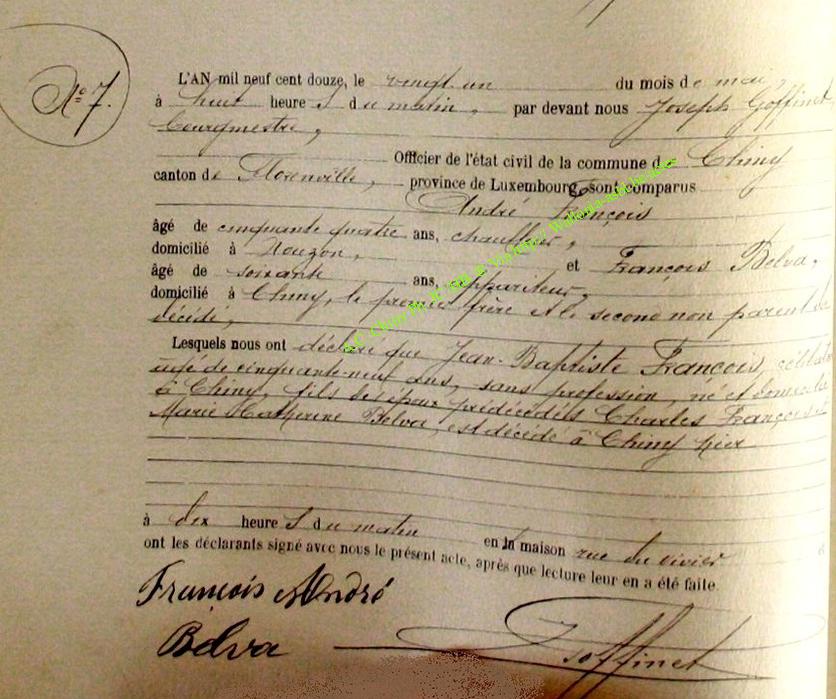 No 7.
L'AN mil neuf cent douze, le vingt un du mois de mai,
à huit heures du matin, par devant nous Joseph Goffinet,
bourgmestre,
Officier de l'état civil de la commune de Chiny
canton de Florenville, province de Luxembourg, sont comparus
André François
âgé de cinquante quatre ans, chauffeur,
domicilié à Nouzon, et François Belva,
âgé de soixante ans, appariteur,
domicilié à Chiny, le premier frère et le second non parent du
décédé,
Lesquels nous ont déclaré que Jean-Baptiste François, célibataire
âgé de cinquante-neuf ans, sans profession, né et domicilié
à Chiny, fils des époux prédécédés Charles François et
Marie Katherine Belva, est décédé à Chiny hier
à dix heures du matin en la maison rue du vivier
ont les déclarants signé avec nous le présent acte, après que lecture leur en a été faite.
François André
Belva
J Goffinet